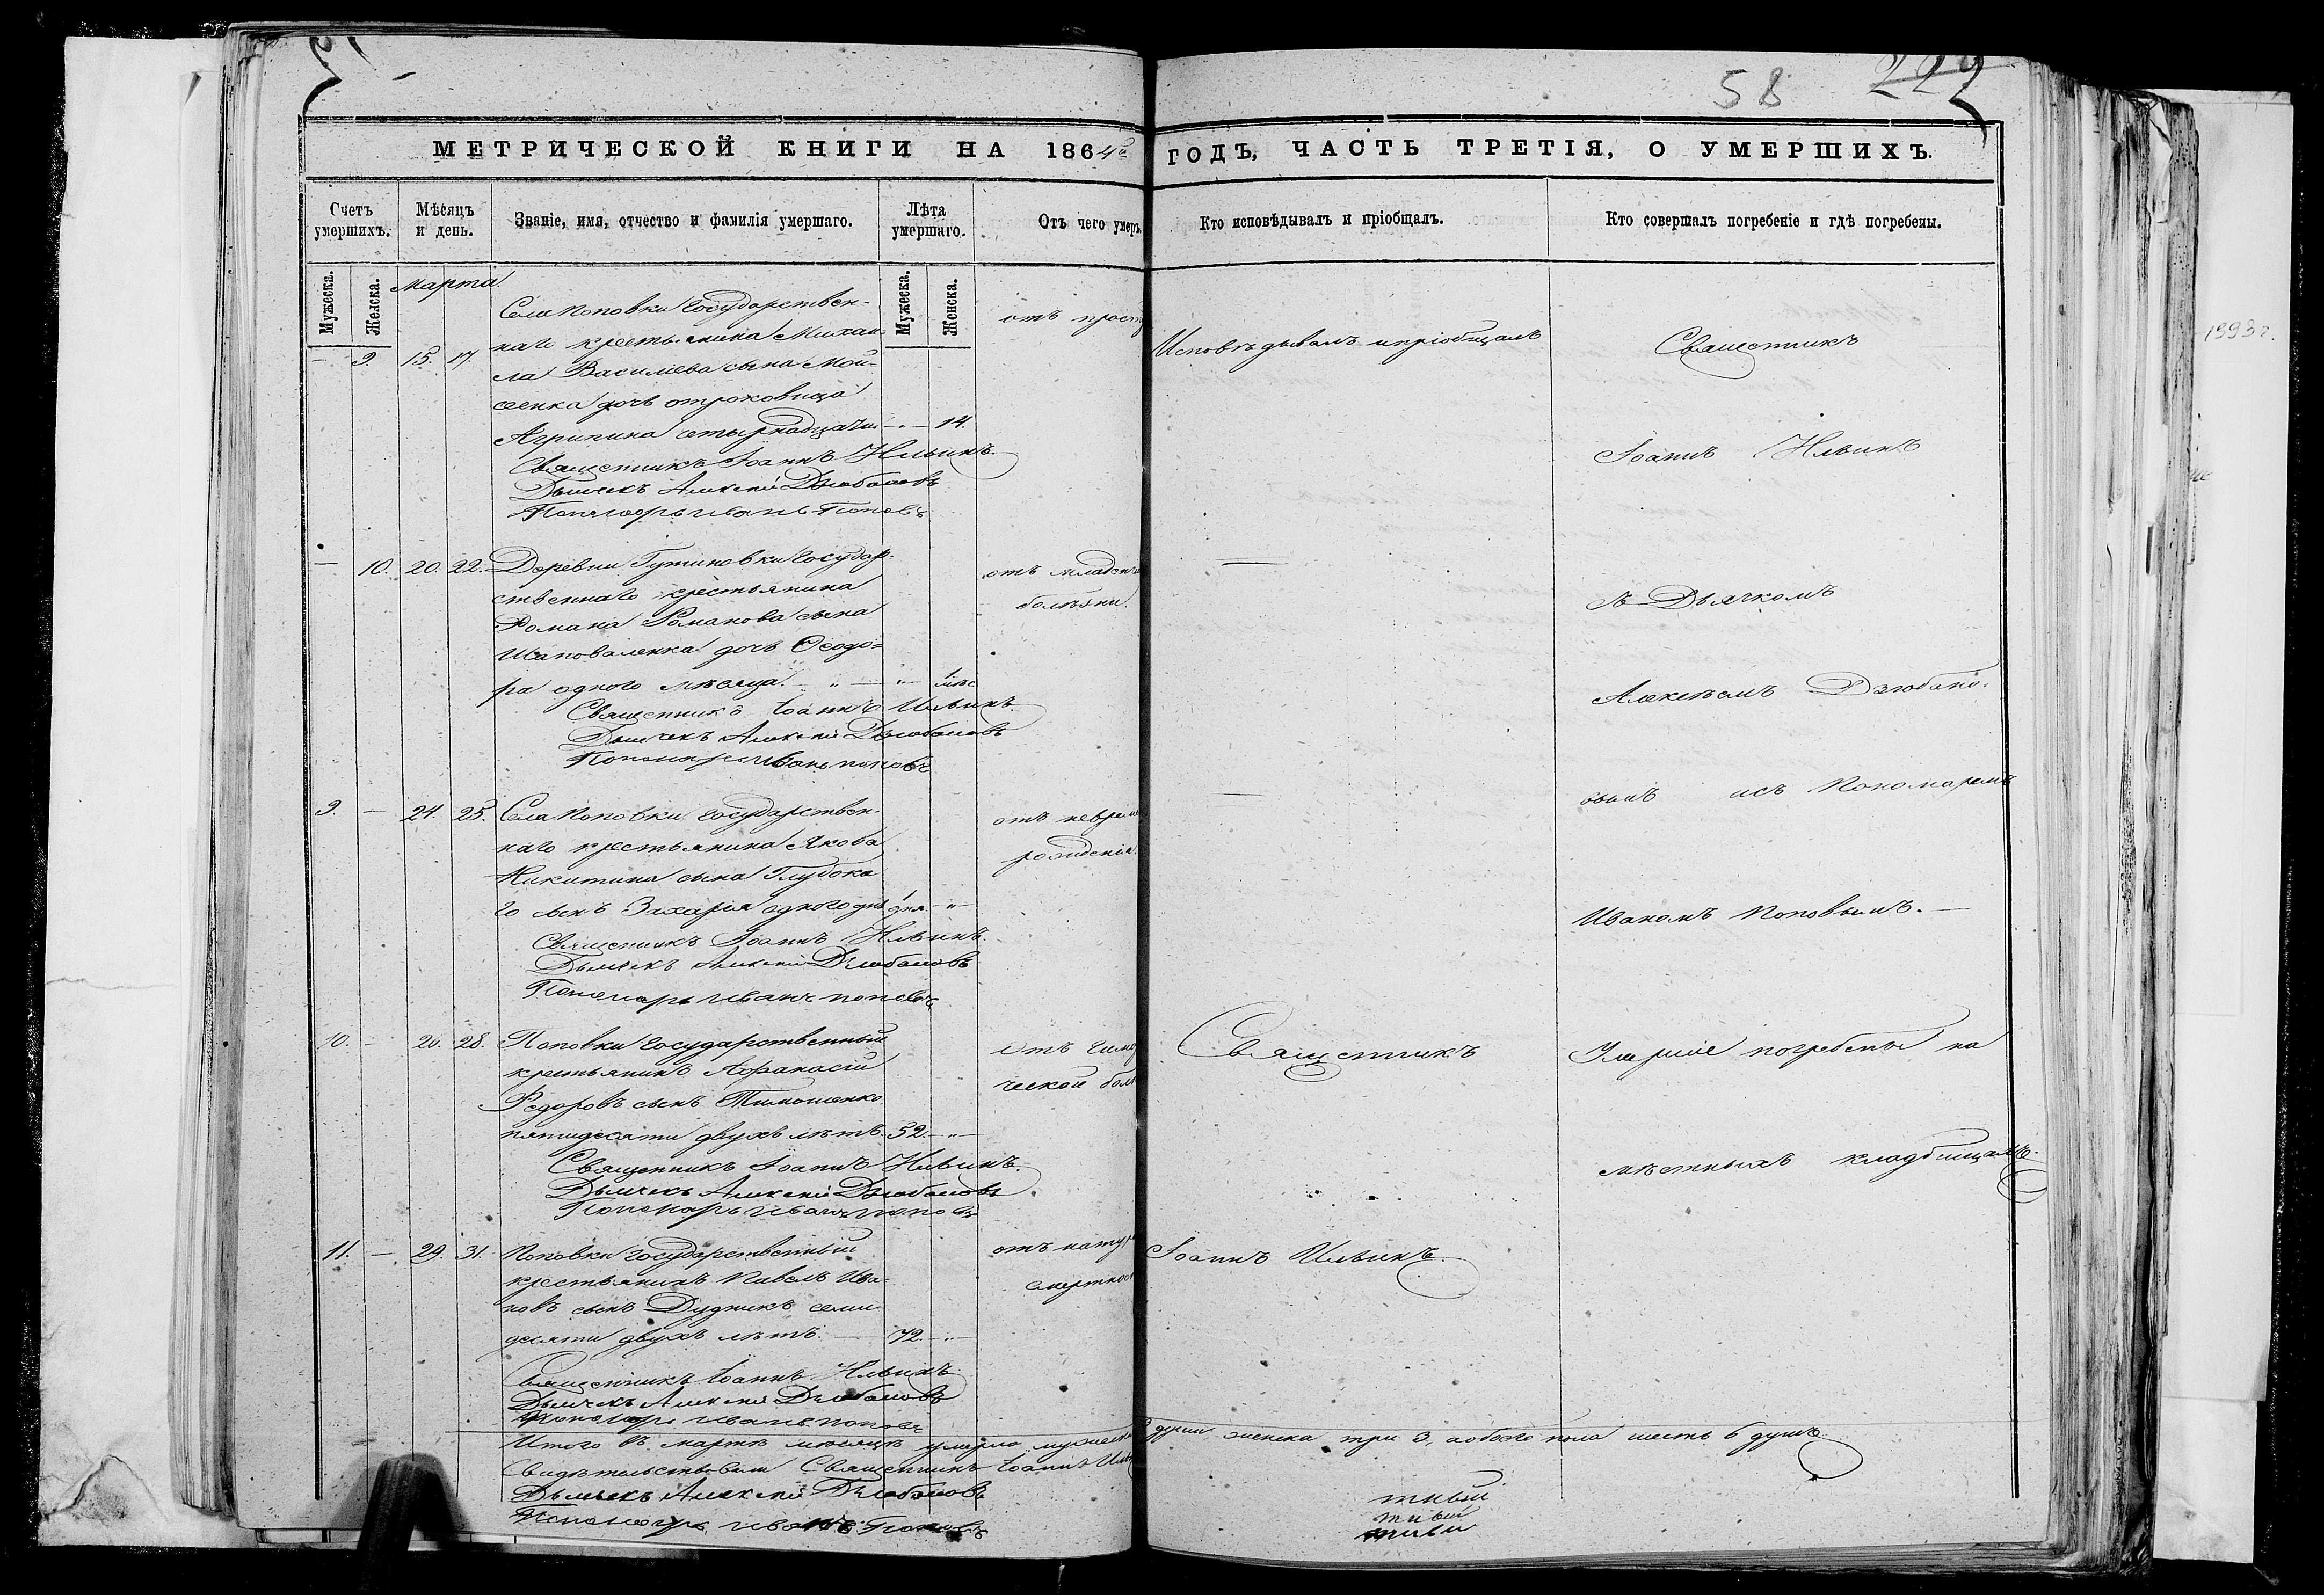 58 222
МЕТРИЧЕСКОЙ КНИГИ НА 1864й ГОДЪ, ЧАСТЬ ТРЕТІЯ, О УМЕРШИХЪ.
Счетъ умершихъ.
Мѣсяцъ и день.
Званіе, имя, отчество и фамилія умершаго.
Лѣта умершаго.
Отъ чего умеръ.
Кто исповѣдывалъ и пріобщалъ.
Кто совершалъ погребеніе и гдѣ погребены.
Мужеска. Женска. Мужеска. Женска.
марта
— 9. 15. 17. Села Поповки Государствен-
наго крестьянина Михаи-
ла Василіева сына Мои-
сеенка дочь отроковица
Агрипина четырнадцати — „ — 14.
отъ прост
Священникъ Іоаннъ Ильинъ.
Дьячекъ Алексій Дзюбановъ
Пономарь Иванъ Поповъ
— 10. 20. 22. Деревни Гутиновки Государ-
ственнаго крестьянина
Романа Романова сына
Шаповаленка дочь Ѳеодо=
ра одного мѣсяца. — „ — „ — 1 мѣс
отъ младенч
болѣзни.
Священникъ Іоаннъ Ильинъ.
Дьячекъ Алексій Дзюбановъ
Пономарь Иванъ Поповъ
9. — 24. 25. Села Поповки Государствен-
наго крестьянина Якова
Никитина сына Глубока
го сынъ Захарія одного дня 1 дня. — „ —
отъ неврем
рожденія.
Священникъ Іоаннъ Ильинъ.
Дьячекъ Алексій Дзюбановъ
Пономарь Иванъ Поповъ
10. — 26. 28. Поповки Государственный
крестьянинъ Аѳанасій
Ѳедоровъ сынъ Тимошенко
пятидесяти двухъ лѣтъ. 52. — „ —
отъ
ческой бол
Священникъ Іоаннъ Ильинъ.
Дьячекъ Алексій Дзюбановъ
Пономарь Иванъ Поповъ
11. — 29. 31. Поповки Государственный
крестьянинъ Павелъ Ива-
новъ сынъ Дудникъ семи-
десяти двухъ лѣтъ. — 72. — „ —
отъ натур
смертнос
Священникъ Іоаннъ Ильинъ.
Дьячекъ Алексій Дзюбановъ
Пономарь Иванъ Поповъ
Исповѣдывалъ и пріобщалъ
Священникъ
Іоаннъ Ильинъ.
Священникъ
Іоаннъ Ильинъ
съ Дьячкомъ
Алексѣемъ Дзюбано-
вымъ и съ Пономаремъ
Иваномъ Поповымъ. —
Умершіе погребены на
мѣстныхъ кладбищахъ.
Итого въ мартѣ мѣсяцѣ умерло мужеска 3 души, женска три 3, а обоего пола шесть 6 душъ.
Свидѣтельствовали Священникъ Іоаннъ Ильинъ
Дьячекъ Алексій Дзюбановъ
Пономарь Иванъ Поповъ
1993 г.